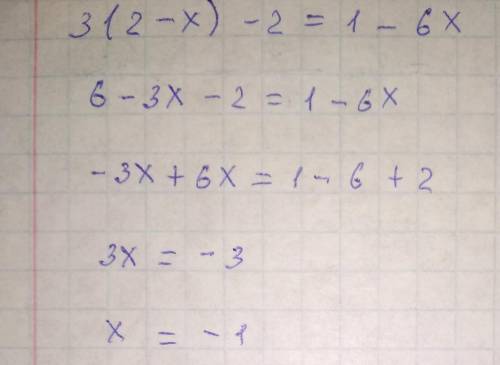 3(2-x) -2 = 1 - 6x
6 - 3x - 2 = 1 - 6x
-3x + 6x = 1 - 6 + 2
3x = - 3
x = - 1